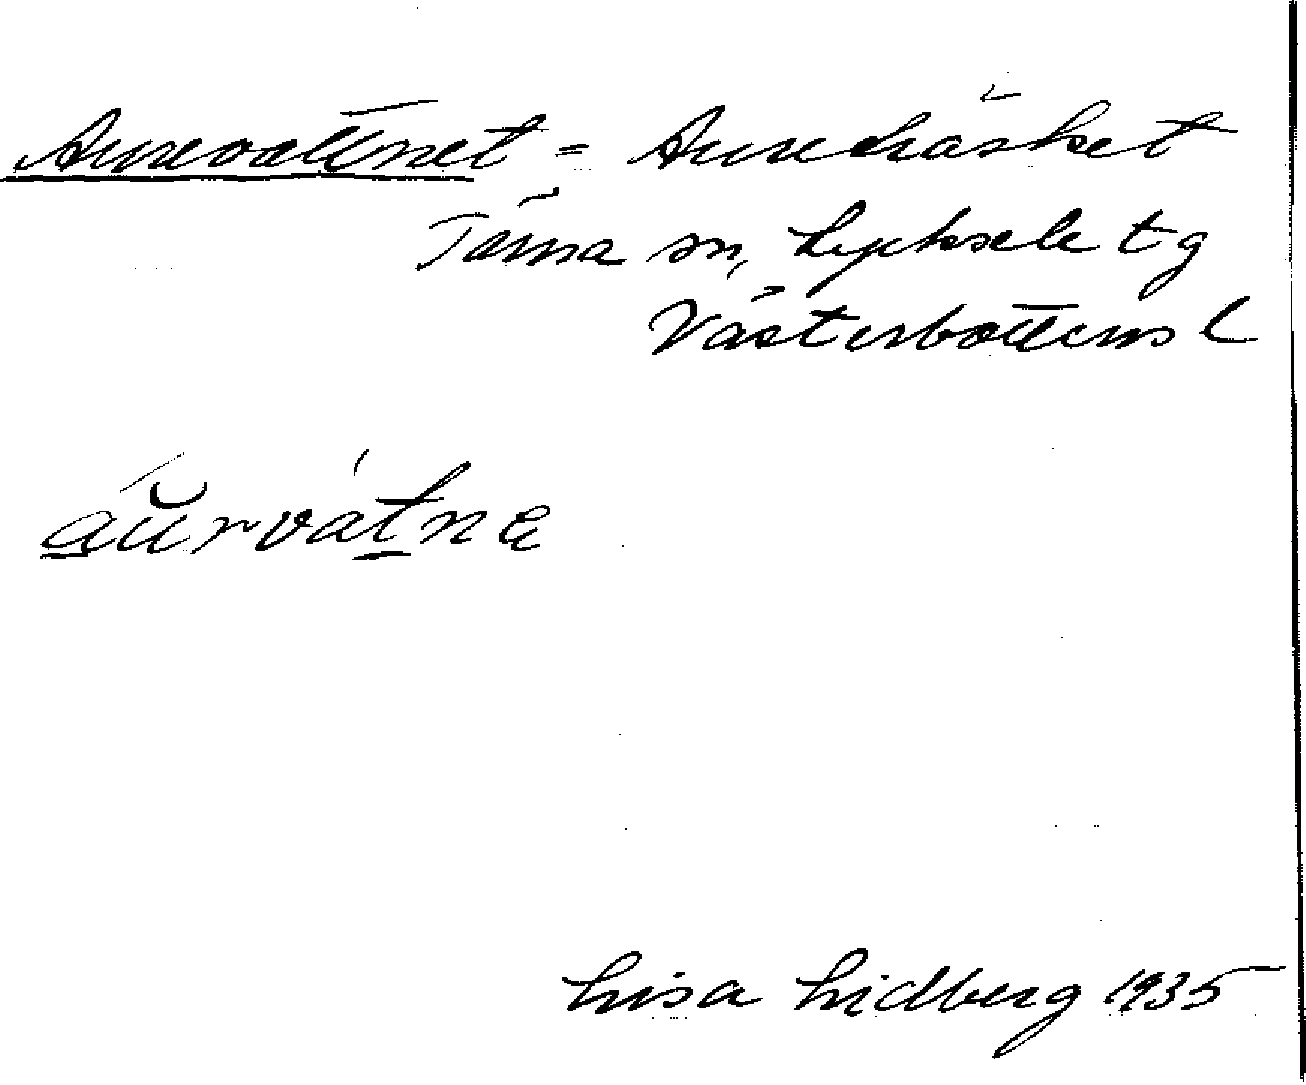 Aurevattnet = Aureträsket
Tärna sn, Lycksele tg
Västerbottens l
áŭrvátnę
Lisa Lidberg 1935